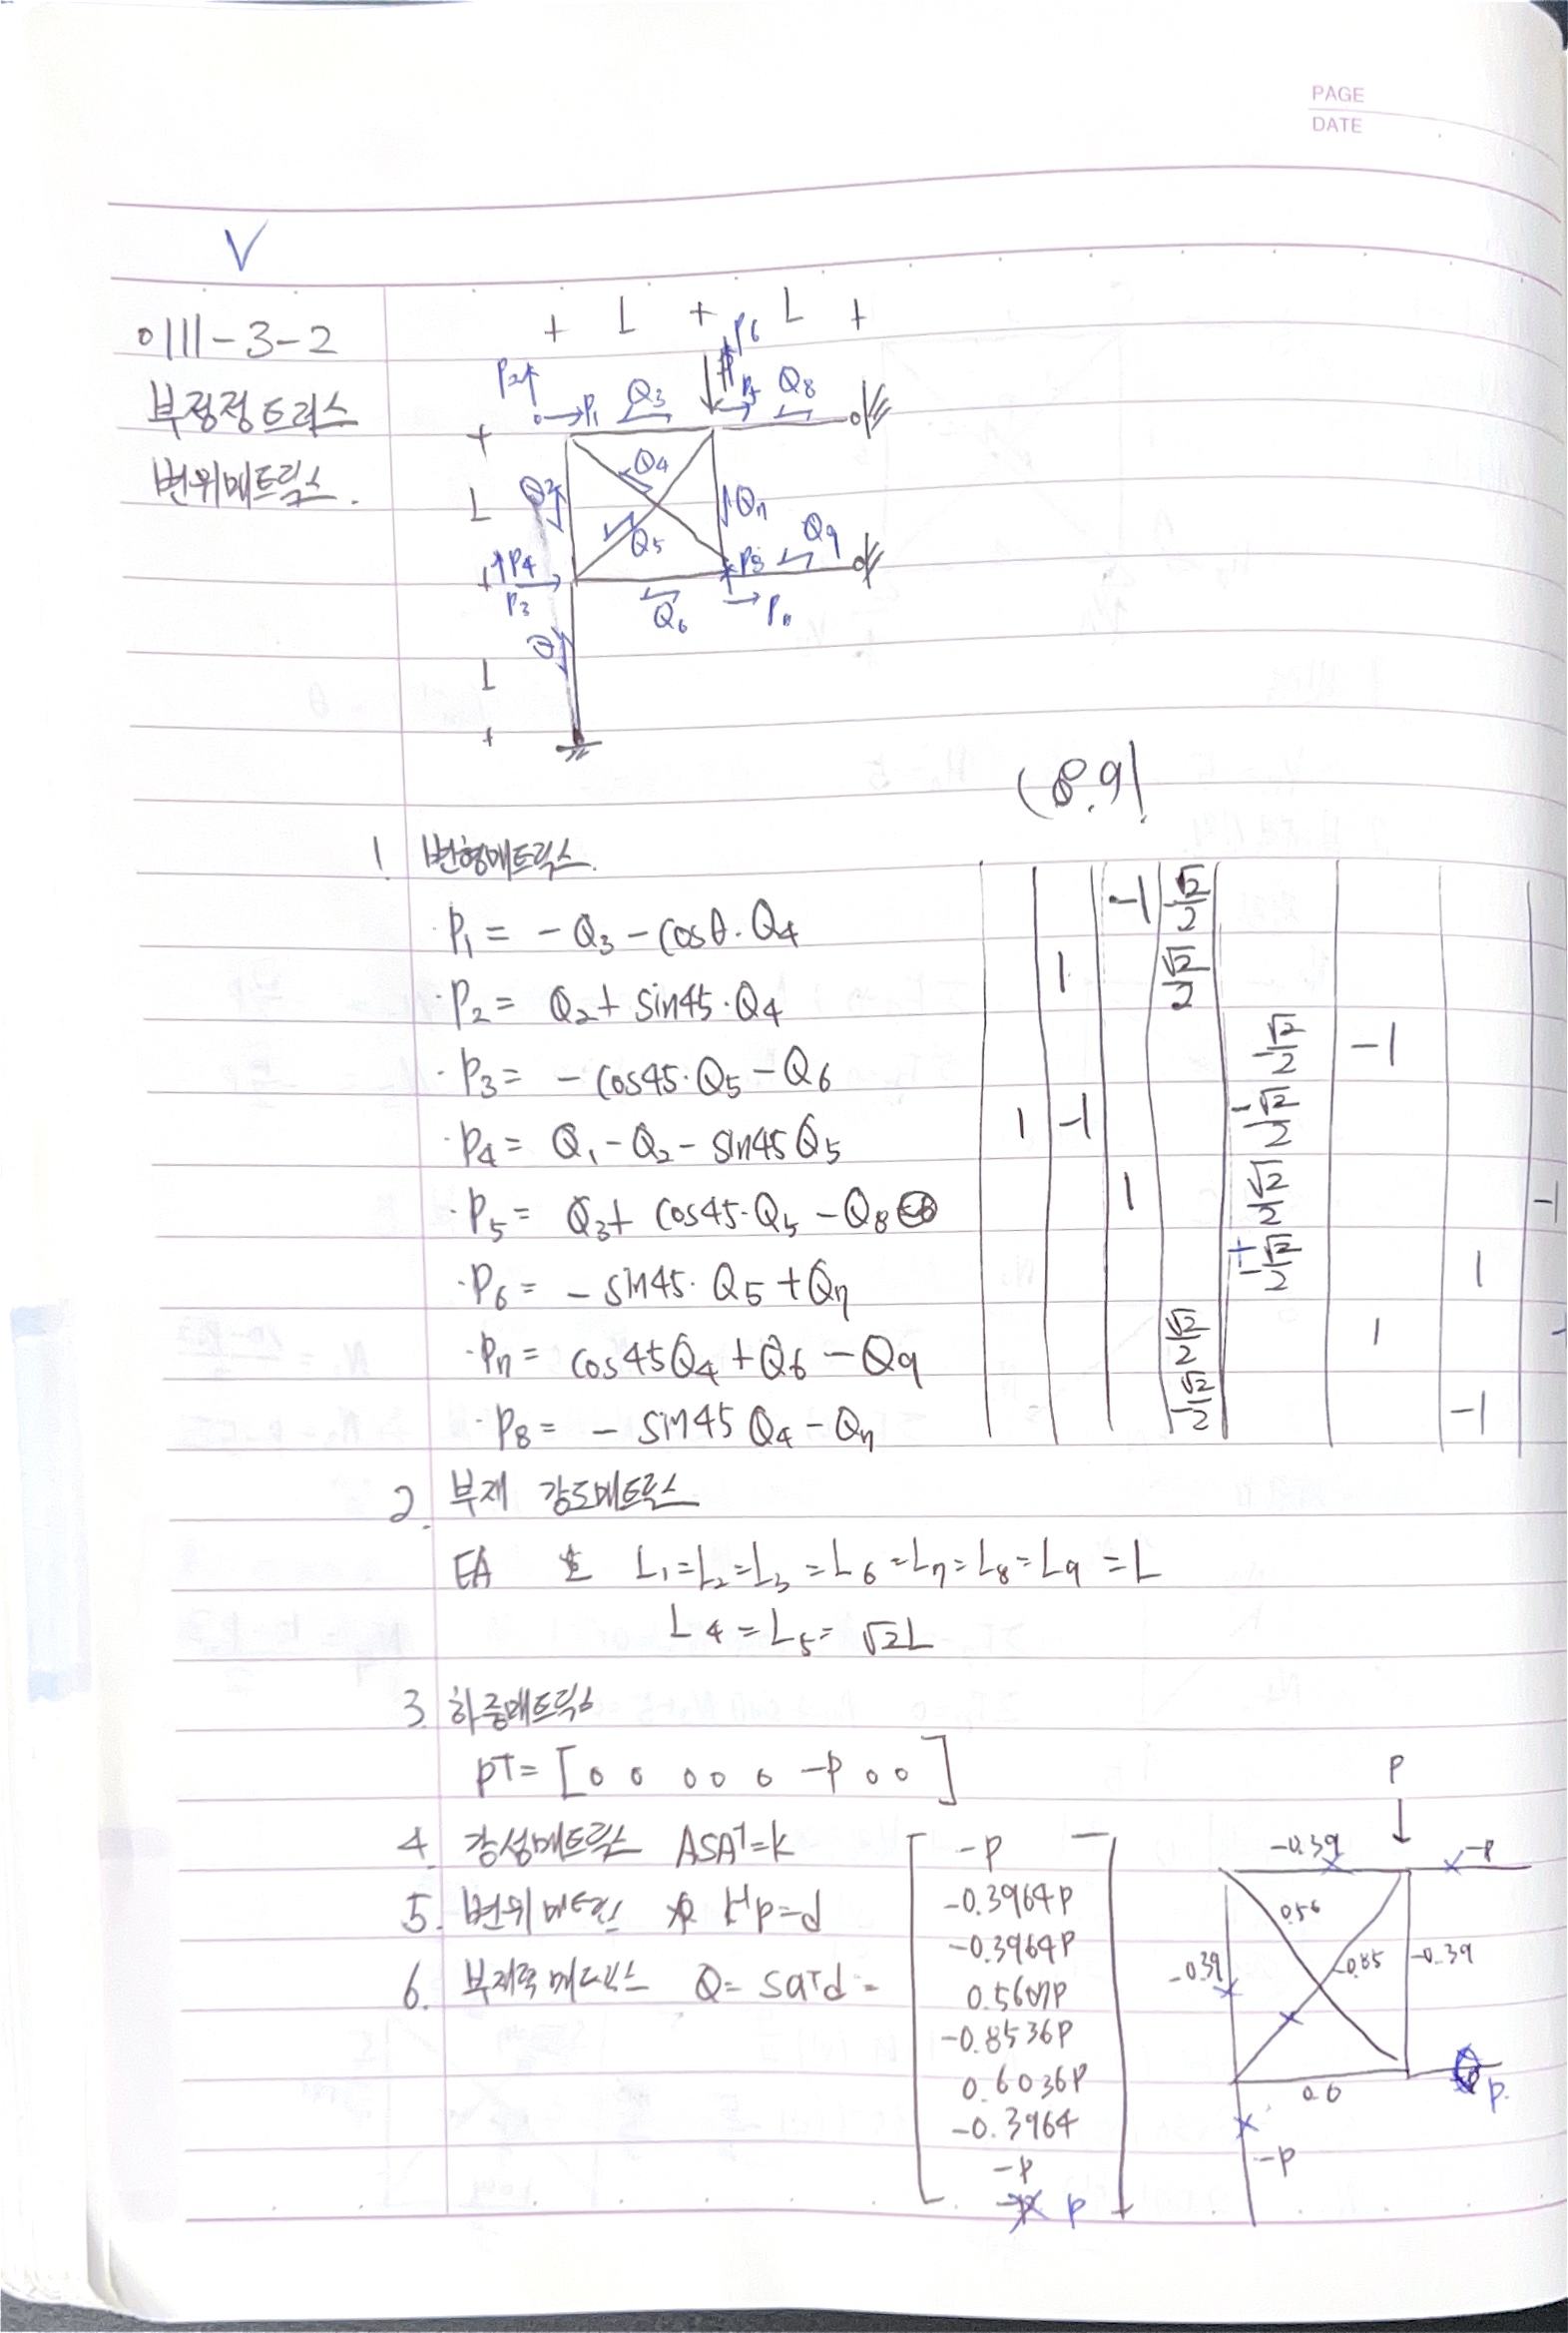 PAGE
DATE
V
0111-3-2
부정정트러스
변위메트릭스.
+ L + L +
P2 P1 Q3 P6 P5 Q8
+
L Q2 Q4 Q7
Q5 Q9
+ P4 P8
P3 Q6 P7
L
+
(8.9)
1 변형메트릭스.
· P1 = - Q3 - cosθ. Q4 -1 √2/2
· P2 = Q2 + sin45 · Q4 1 √2/2
· P3 = - cos45 · Q5 - Q6 -√2/2 -1
· P4 = Q1 - Q2 - sin45 Q5 1 -1 -√2/2
· P5 = Q3 + cos45 · Q5 - Q8 1 √2/2 -1
· P6 = - sin45 · Q5 + Q7 +√2/2 1
· P7 = cos45 Q4 + Q6 - Q9 √2/2 1 -
· P8 = - sin45 Q4 - Q7 -√2/2 -1
2. 부재 강도메트릭스
EA L1=L2=L3=L6=L7=L8=L9=L
L4=L5=√2L
3. 하중메트릭스
PT=[0 0 0 0 0 -P 0 0]
4. 강성메트릭스 ASAT=k
5. 변위메트릭스 k-1p=d
6. 부재력 메트릭스 Q= saTd =
-P
-0.3964P
-0.3964P
0.5607P
-0.8536P
0.6036P
-0.3964
-P
P
P
-0.39 -P
0.56
-0.39 -0.85 -0.39
0.6 P.
-P